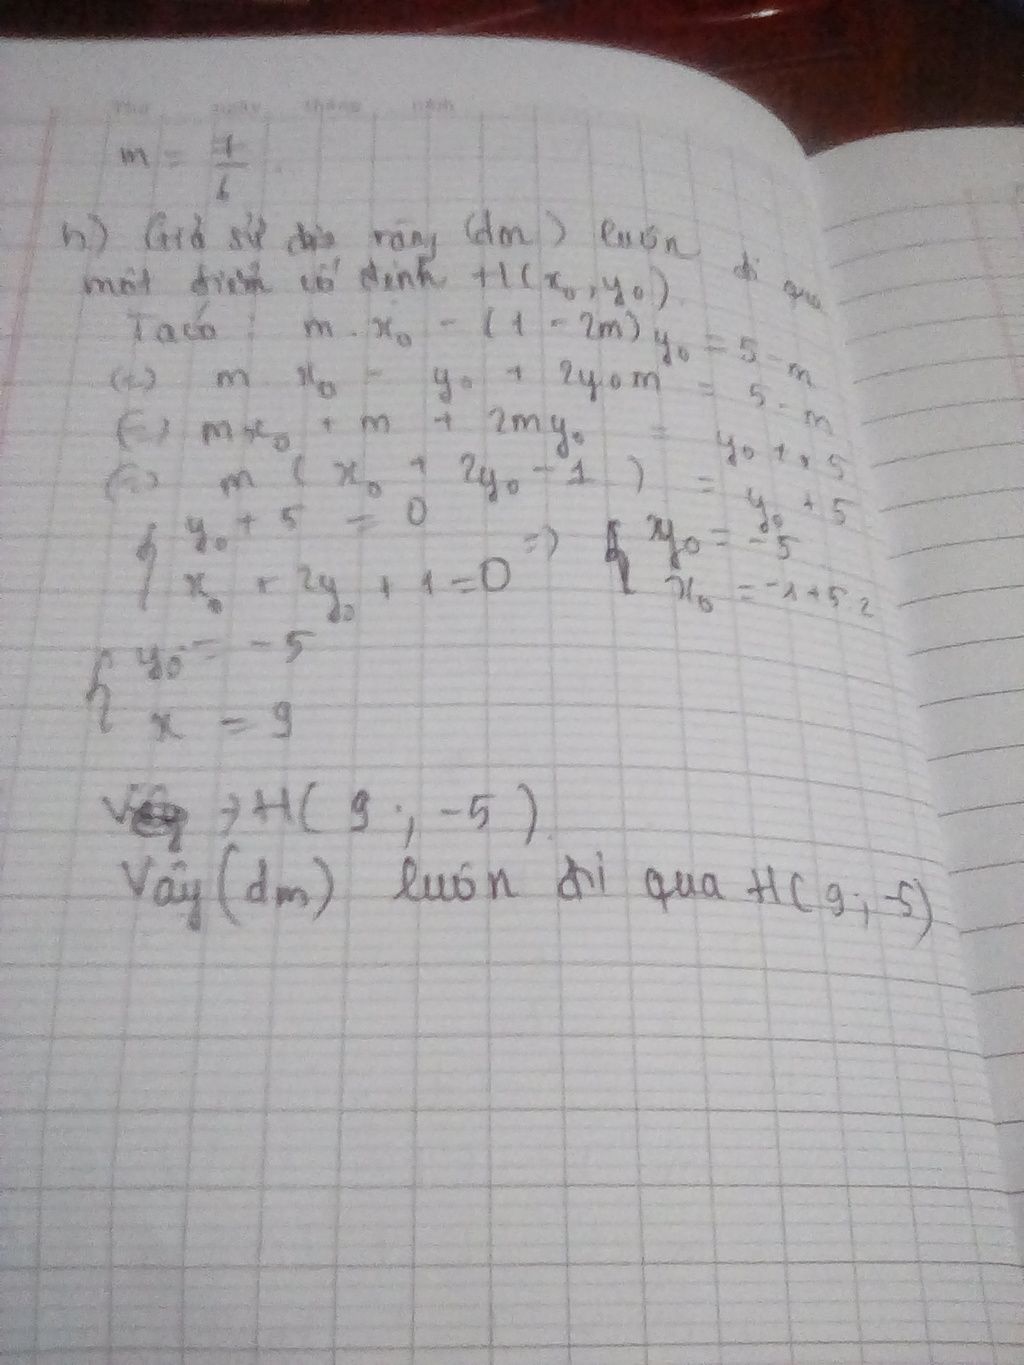 Thứ ngày tháng năm
m = 7/6
h) Giả sử đường thẳng (dm) luôn đi qua
một điểm cố định H(x₀, y₀)
Ta có: m. x₀ - (1 - 2m) y₀ = 5 - m
(=) m x₀ - y₀ + 2y₀m = 5 - m
(=) mx₀ + m + 2my₀ = y₀ + 5
(=) m (x₀ + 2y₀ + 1) = y₀ + 5
{ y₀ + 5 = 0 => { y₀ = -5
{ x₀ + 2y₀ + 1 = 0 { x₀ = -1 + 5.2
{ y₀ = -5
{ x = 9
→ H( 9 ; -5 )
Vậy (dm) luôn đi qua H( 9 ; -5)